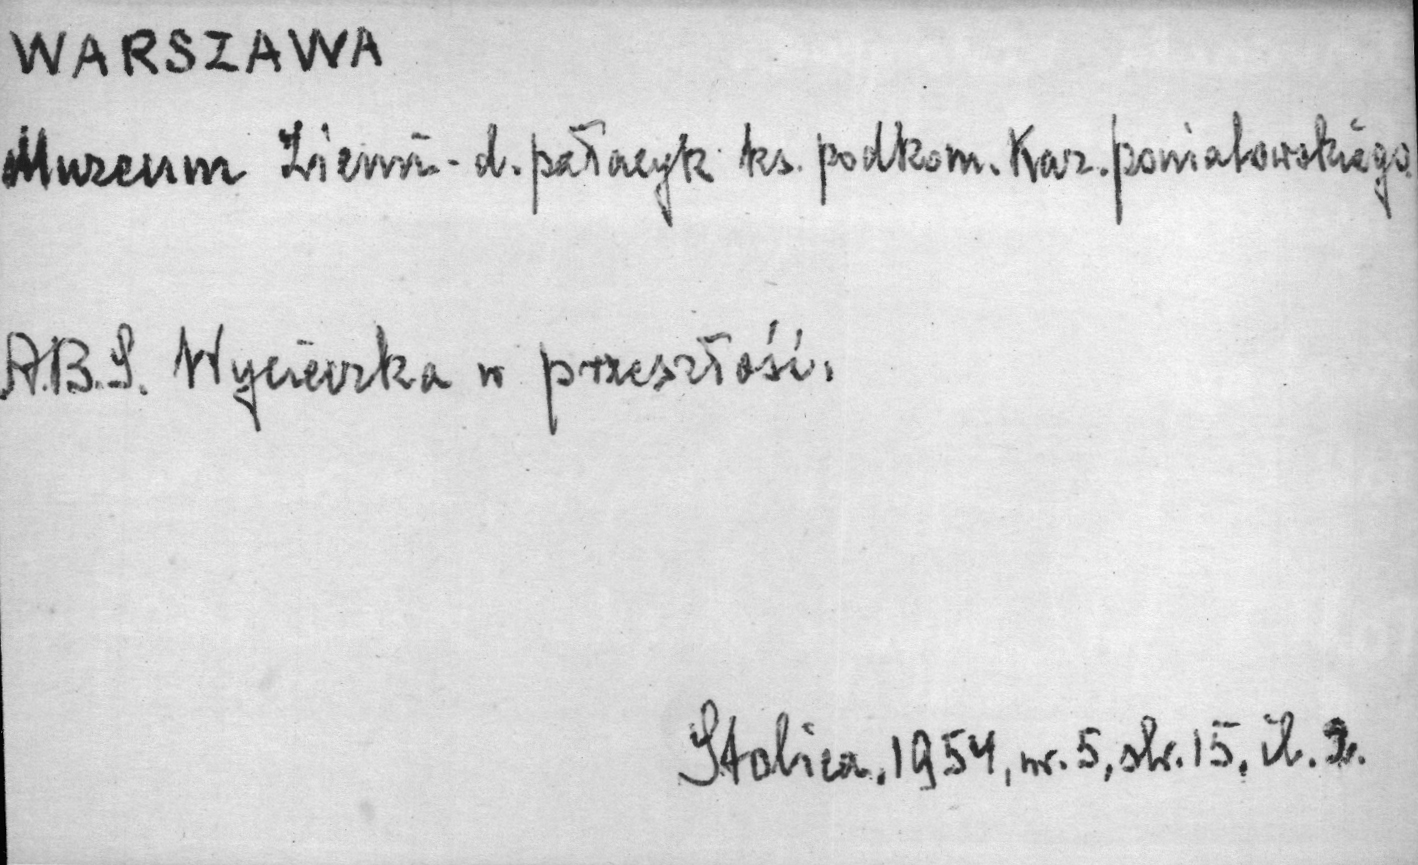 WARSZAWA
Muzeum Ziemi - d. pałacyk ks. podkom. Kaz. Poniatowskiego
A.B.S. Wycieczka w przeszłość.
Stolica, 1954, nr. 5, str. 15, il. 2.